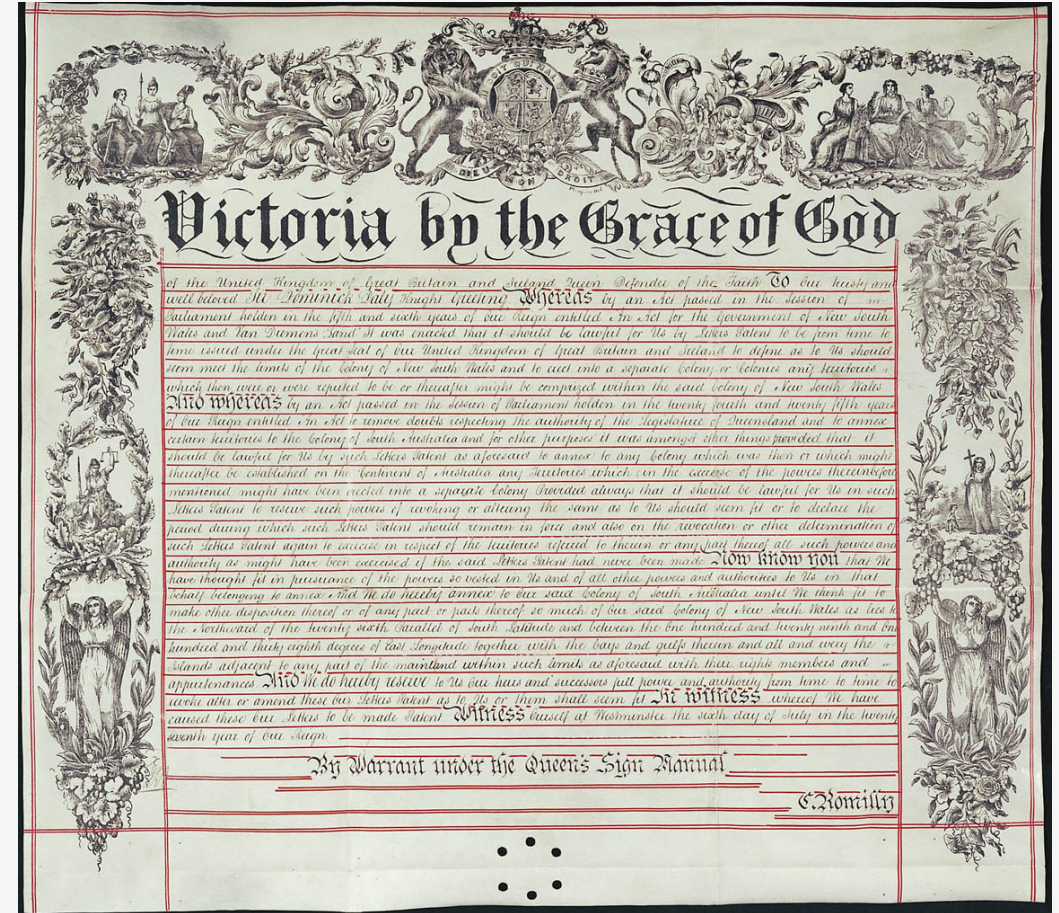 DIEU ET MON DROIT
Victoria by the Grace of God
of the United Kingdom of Great Britain and Ireland Queen Defender of the Faith To Our trusty and
well beloved Sir Dominick Daly Knight Greeting Whereas by an Act passed in the Session of
Parliament holden in the fifth and sixth years of Our Reign entitled "An Act for the Government of New South
Wales and Van Diemens Land" It was enacted that it should be lawful for Us by Letters Patent to be from time to
time issued under the Great Seal of Our United Kingdom of Great Britain and Ireland to define as to Us should
seem meet the limits of the Colony of New South Wales and to erect into a separate Colony or Colonies any territories
which then were or were reputed to be or thereafter might be comprized within the said Colony of New South Wales
And whereas by an Act passed in the Session of Parliament holden in the twenty fourth and twenty fifth years
of Our Reign entitled "An Act to remove doubts respecting the authority of the Legislature of Queensland and to annex
certain territories to the Colony of South Australia and for other purposes" it was amongst other things provided that it
should be lawful for Us by such Letters Patent as aforesaid to annex to any Colony which was then or which might
thereafter be established on the Continent of Australia any Territories which in the exercise of the powers thereinbefore
mentioned might have been erected into a separate Colony Provided always that it should be lawful for Us in such
Letters Patent to reserve such powers of revoking or altering the same as to Us should seem fit or to declare the
period during which such Letters Patent should remain in force and also on the revocation or other determination of
such Letters Patent again to exercise in respect of the territories referred to therein or any part thereof all such powers and
authority as might have been exercised if the said Letters Patent had never been made Now know you that We
have thought fit in pursuance of the powers so vested in Us and of all other powers and authorities to Us in that
behalf belonging to annex And We do hereby annex to Our said Colony of South Australia until We think fit to
make other disposition thereof or of any part or parts thereof so much of Our said Colony of New South Wales as lies to
the Northward of the twenty sixth Parallel of South Latitude and between the One hundred and twenty ninth and One
hundred and thirty eighth degrees of East Longitude together with the bays and gulfs therein and all and every the
Islands adjacent to any part of the mainland within such limits as aforesaid with their rights members and
appurtenances And We do hereby reserve to Us Our heirs and successors full power and authority from time to time to
revoke alter or amend these Our Letters Patent as to Us or them shall seem fit In witness whereof We have
caused these Our Letters to be made Patent Witness Ourself at Westminster the sixth day of July in the twenty
seventh year of Our Reign.
By Warrant under the Queens Sign Manual
C. Romilly